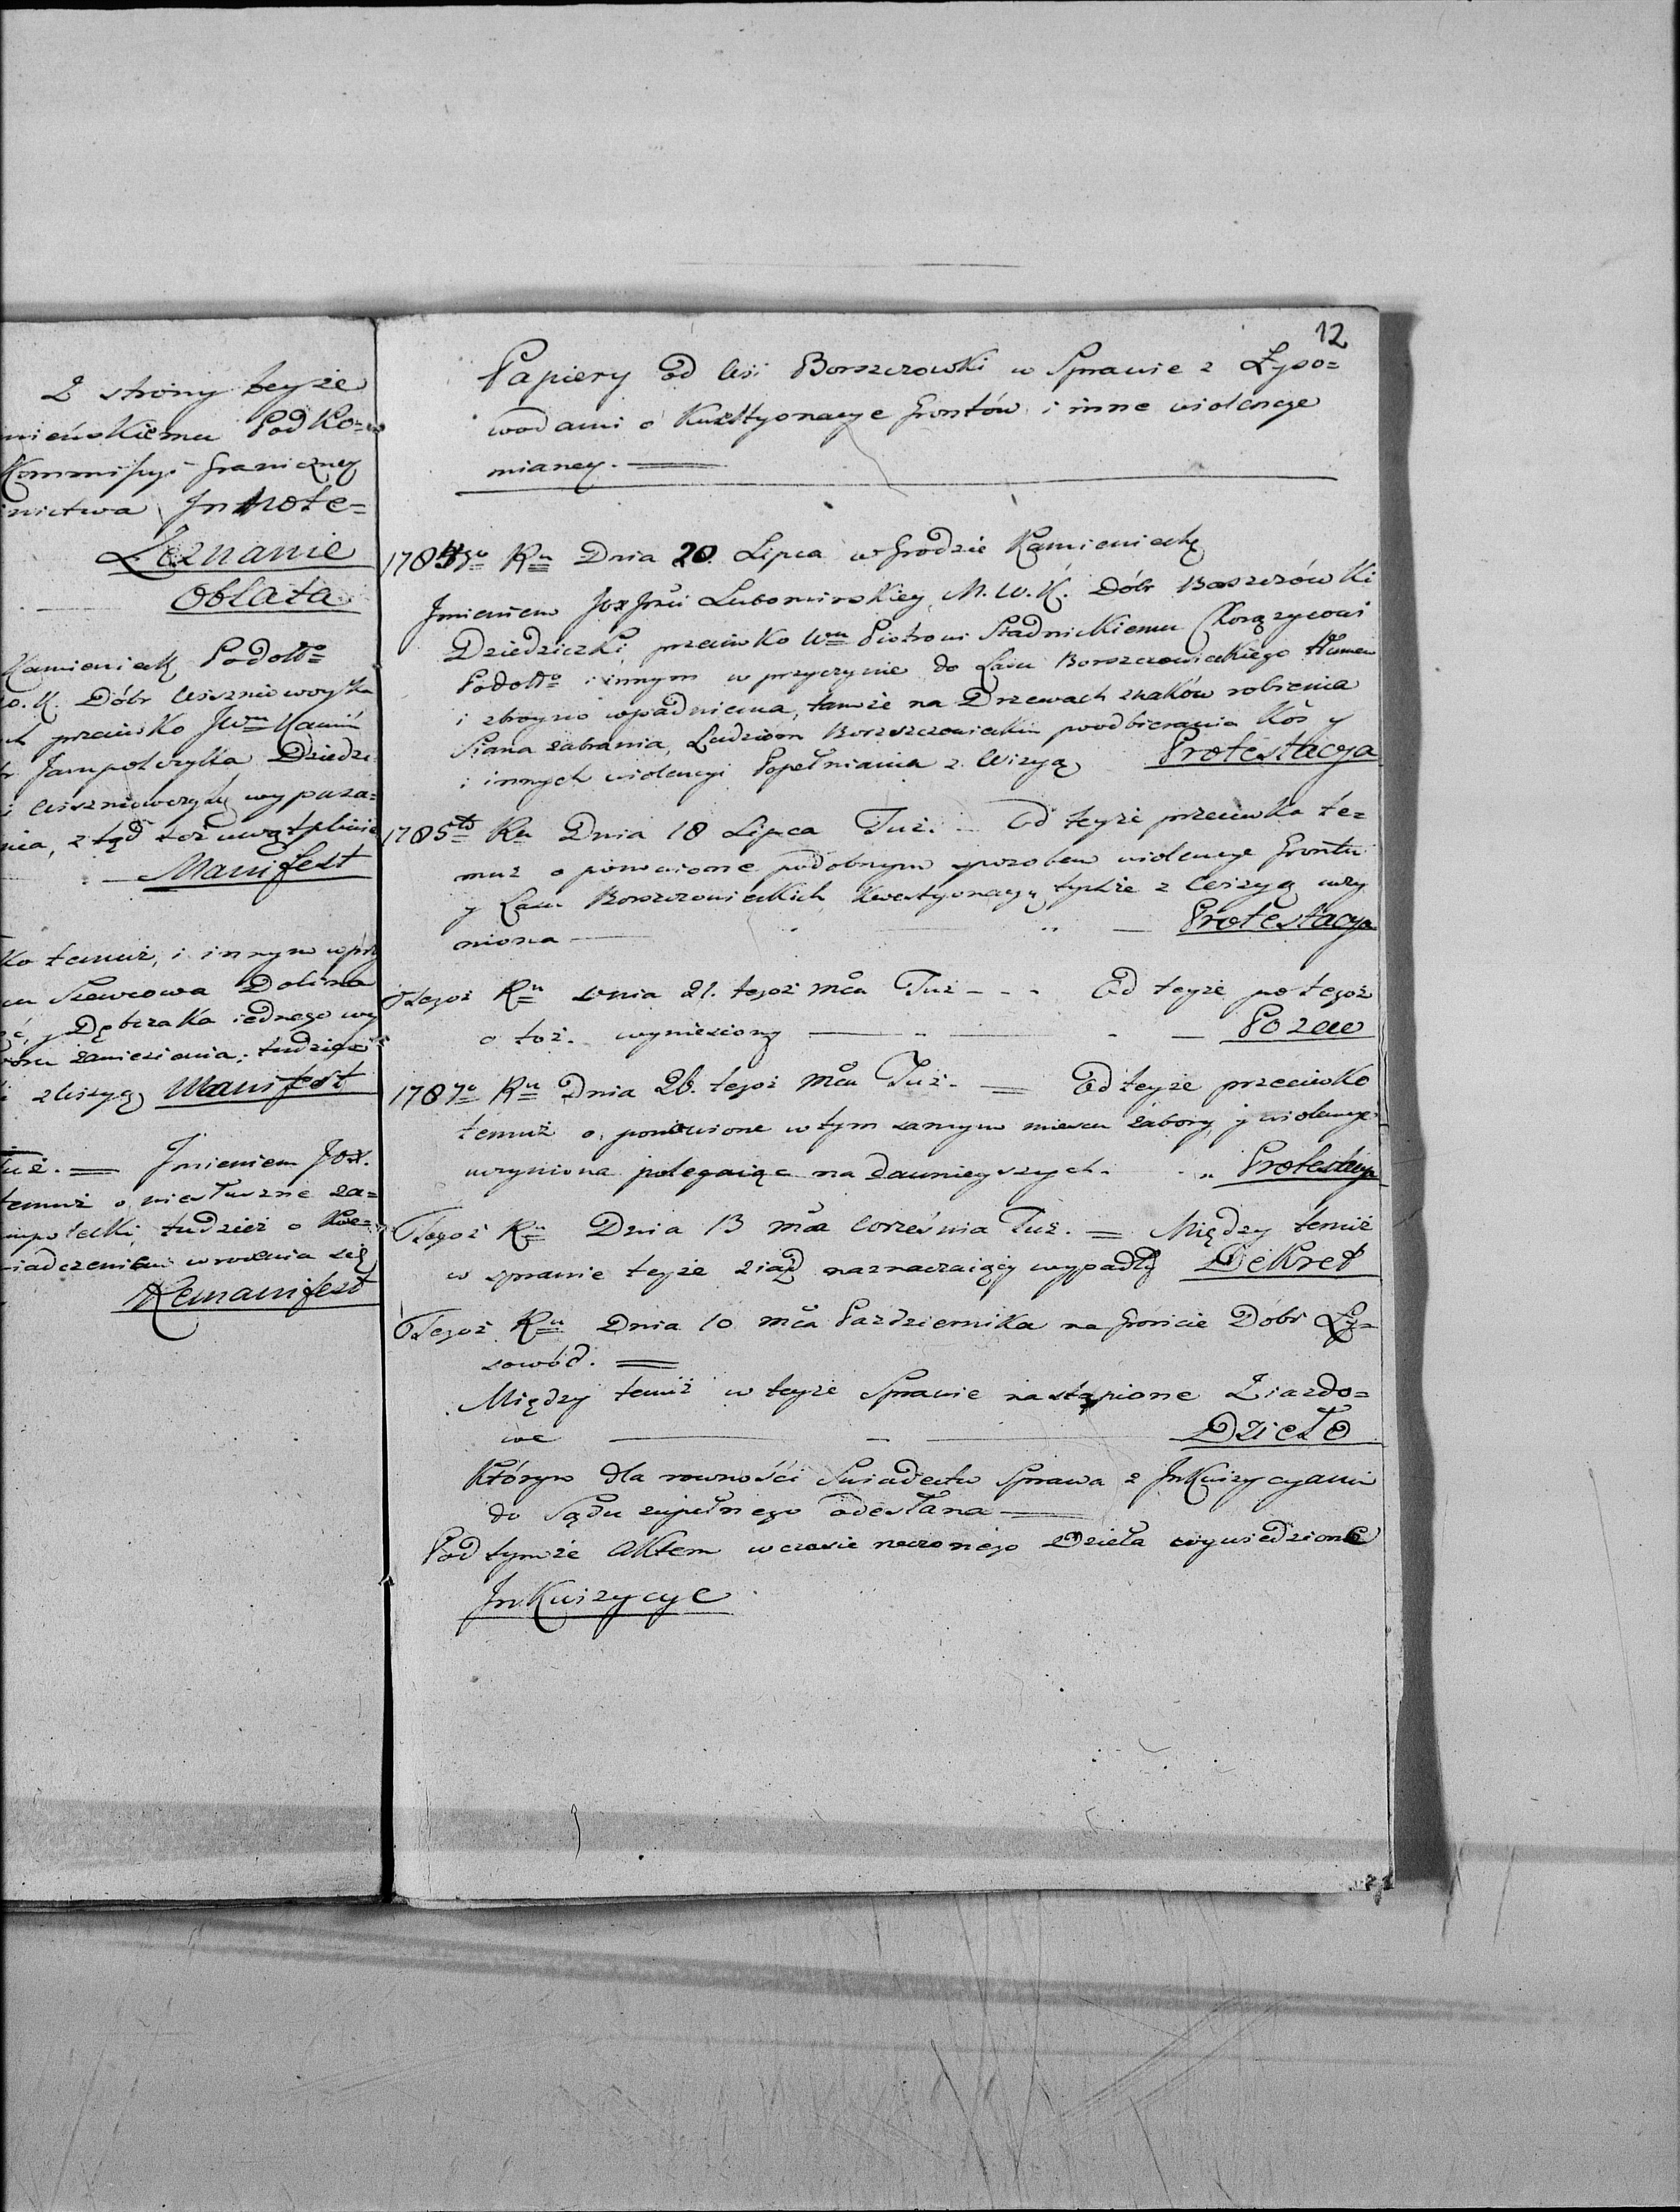 Z strony teyże
mieńskiemu Podko=
Kommissyi Graniczney
nictwa Jnnote=
Zeznanie
Oblata
Kamieniecki Podolło
W. K. Dóbr Wiszniowczyka
przeciwko JWmu
Jampolczyka Dziedzi
i Wiszniowczyka wypasa=
nia, z tąd toż uwątplinie
Manifest
ko temuż, i innym w przy
Szewcowa Dolina
Dębczaka iednego wy
zaniesienia, tudzież
z Wizyą Manifest
Tuż. = Jmieniem JOx.
temuż o niesłuszne za=
tudzież o Kwe=
iadczeniem wrocenia się
Remanifest
12
Papiery od Wsi Borszczowki w Sprawie z Łyso=
wodami o Kwestyonacye Gruntów i inne violencye
mianey.
1784go Ru Dnia 20 Lipca w Grodzie Kamienieckę
Jmieniem JOx Jmci Lubomirskiey M. W. K. Dóbr Borszczówki
Dziedziczki, przeciwko Wmu Piotrowi Stadnickiemu Chorązycowi
Podollo i innym w przyczynie do Lasu Borszczowieckiego tłumem
i zbroyno wpadniema, tamże na Drzewach znaków robienia
Siana zabrania, Ludziom Borszczowieckim poodbierania Kós y
i innych violencyi Popełniania z Wizyą Protestacya
1785to Ru Dnia 18 Lipca Tuż. Od teyże przeciwko te=
muż o ponowione podobnym sposobem violencye Gruntu
y Lasu Borszczowieckich Kwestyonacyą tychże z Wizyą uczy
niona Protestacya
Tegoż Ru Dnia 21. tegoż mca Tuż - - - Od teyże po tegoż
o toż. wyniesiony Pozew
1787o Ru Dnia 26. tegoż mca Tuż. = Od teyże przeciwko
temuż o, ponowione w tym samym miescu zabory y violencye
uczyniona polegaiąc na dawnieyszych Protestacya
Tegoż Ru Dnia 13 mca Września Tuż. = Między temiż
w sprawie teyże ziazd naznaczaiący wypadły Dekret
Tegoż Ru Dnia 10 mca Pazdziernika na Gruncie Dóbr Ły=
sowód. =
Między temiż w teyże Sprawie nastąpione Ziazdo=
we Dzieło
Którym dla rowności Swiadectw Sprawa z Jnkwizycyami
do Sądu zupełnego odesłana
Pod tymże Aktem w czasie rzeczonego Dzieła wywiedzione
Jnkwizycye